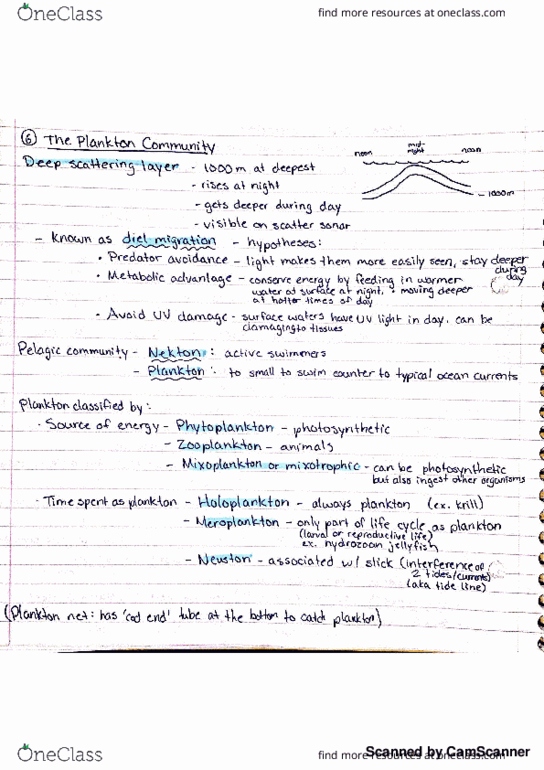 OneClass
find more resources at oneclass.com
⑥ The Plankton Community
noon mid-night noon
Deep scattering layer - 1000m at deepest
- rises at night
- 1000m
- gets deeper during day
- visible on scatter sonar
- Known as diel migration - hypotheses:
• Predator avoidance - light makes them more easily seen, stay deeper during day
• Metabolic advantage - conserve energy by feeding in warmer
water at surface at night, moving deeper
at hotter times of day
• Avoid UV damage - surface waters have UV light in day. can be
damaging to tissues
Pelagic community - Nekton : active swimmers
- Plankton : to small to swim counter to typical ocean currents
Plankton classified by:
· Source of energy - Phytoplankton - photosynthetic
- Zooplankton - animals
- Mixoplankton or mixotrophic - can be photosynthetic
but also ingest other organisms
· Time spent as plankton - Holoplankton - always plankton (ex. krill)
- Meroplankton - only part of life cycle as plankton
(larval or reproductive life)
ex. hydrozoan jellyfish
- Neuston - associated w/ slick (interference of
2 tides/currents)
(aka tide line)
(Plankton net: has 'cod end' tube at the bottom to catch plankton)
OneClass
find more resources at oneclass.com
Scanned by CamScanner